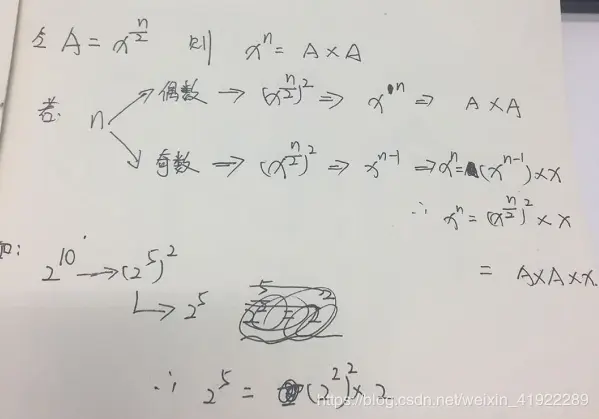 令 A = x^(n/2) 则 x^n = A × A
若: n → 偶数 → (x^(n/2))^2 ⇒ x^n ⇒ A × A
→ 奇数 ⇒ (x^(n/2))^2 ⇒ x^(n-1) ⇒ x^n = (x^(n-1)) × x
∴ x^n = (x^(n/2))^2 × x
= A × A × x.
如: 2^10 → (2^5)^2
↳ 2^5
∴ 2^5 = (2^2)^2 × 2
https://blog.csdn.net/weixin_41922289